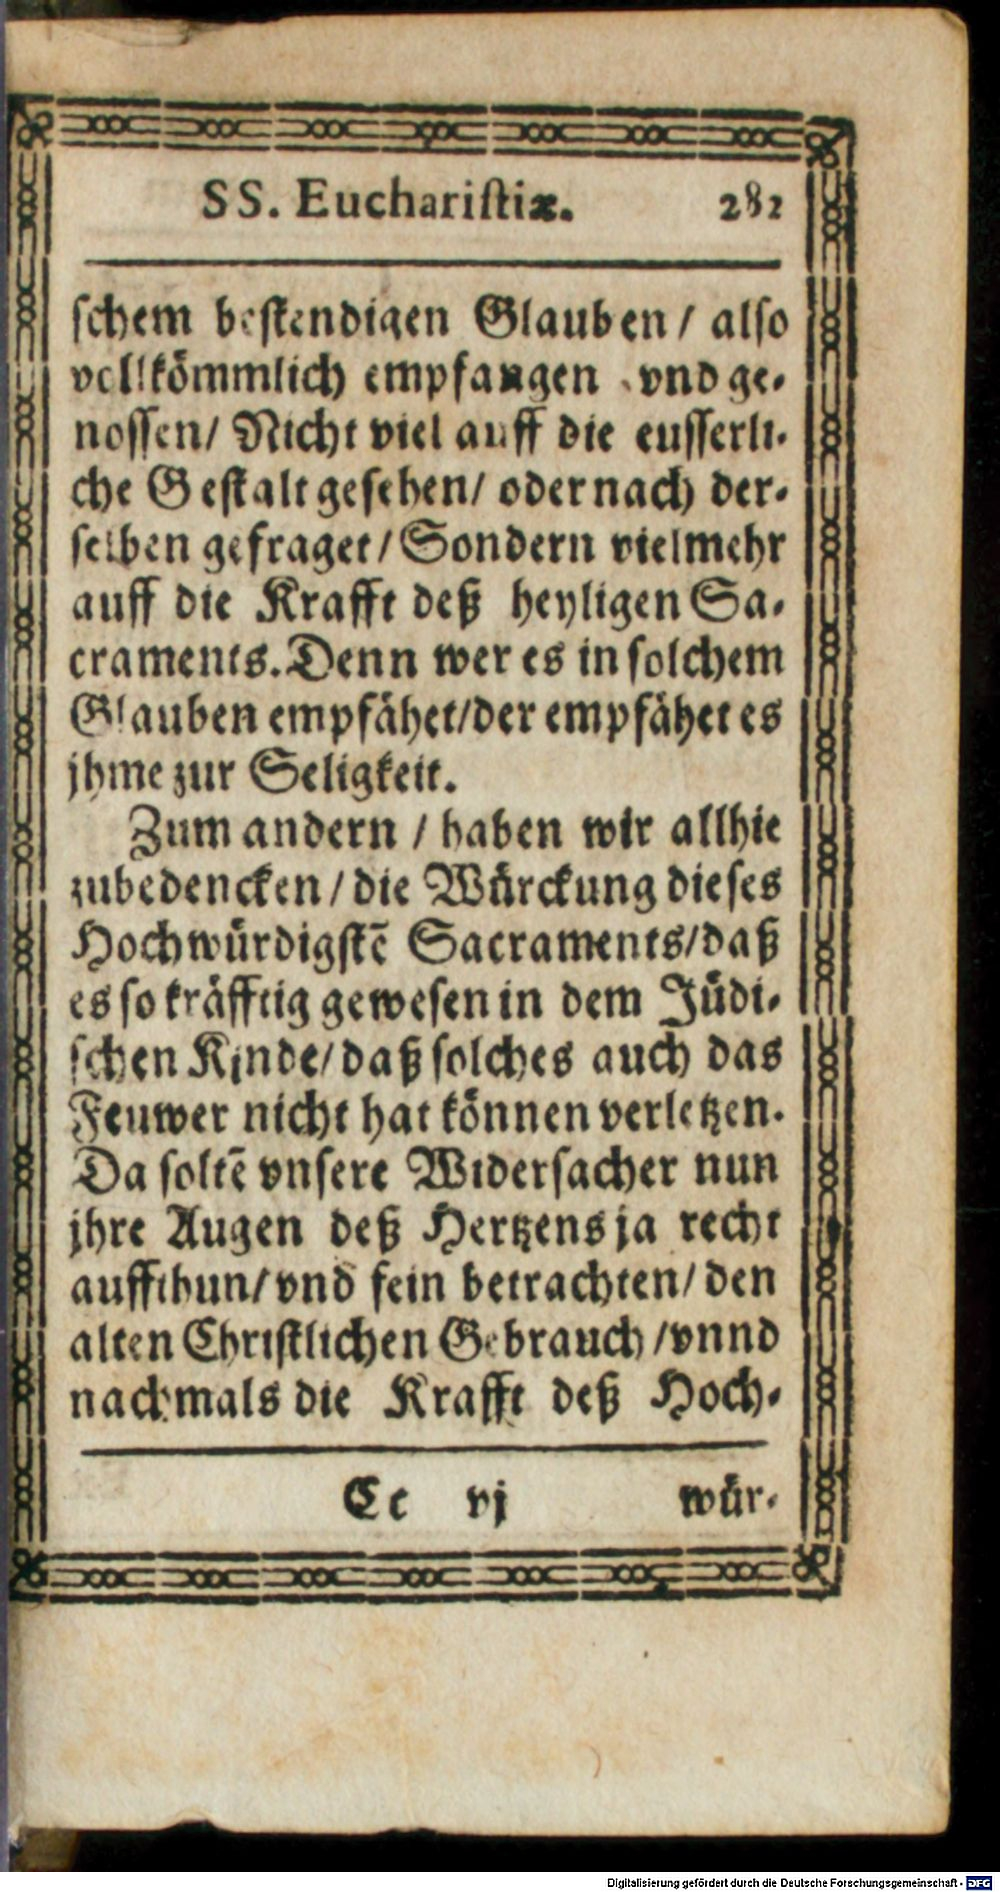 SS. Eucharistiæ. 282
schem bestendigen Glauben / also
vollkömmlich empfangen vnd ge-
nossen / Nicht viel auff die eusserli-
che Gestalt gesehen / oder nach der-
selben gefraget / Sondern vielmehr
auff die Krafft deß heyligen Sa-
craments. Denn wer es in solchem
Glauben empfähet / der empfähet es
jhme zur Seligkeit.
Zum andern / haben wir allhie
zubedencken / die Würckung dieses
Hochwürdigstē Sacraments / daß
es so kräfftig gewesen in dem Jüdi-
schen Kinde / daß solches auch das
Feuwer nicht hat können verletzen.
Da soltē vnsere Widersacher nun
jhre Augen deß Hertzens ja recht
auffthun / vnd fein betrachten / den
alten Christlichen Gebrauch / vnnd
nachmals die Krafft deß Hoch-
Cc vj wür-
Digitalisierung gefördert durch die Deutsche Forschungsgemeinschaft - DFG